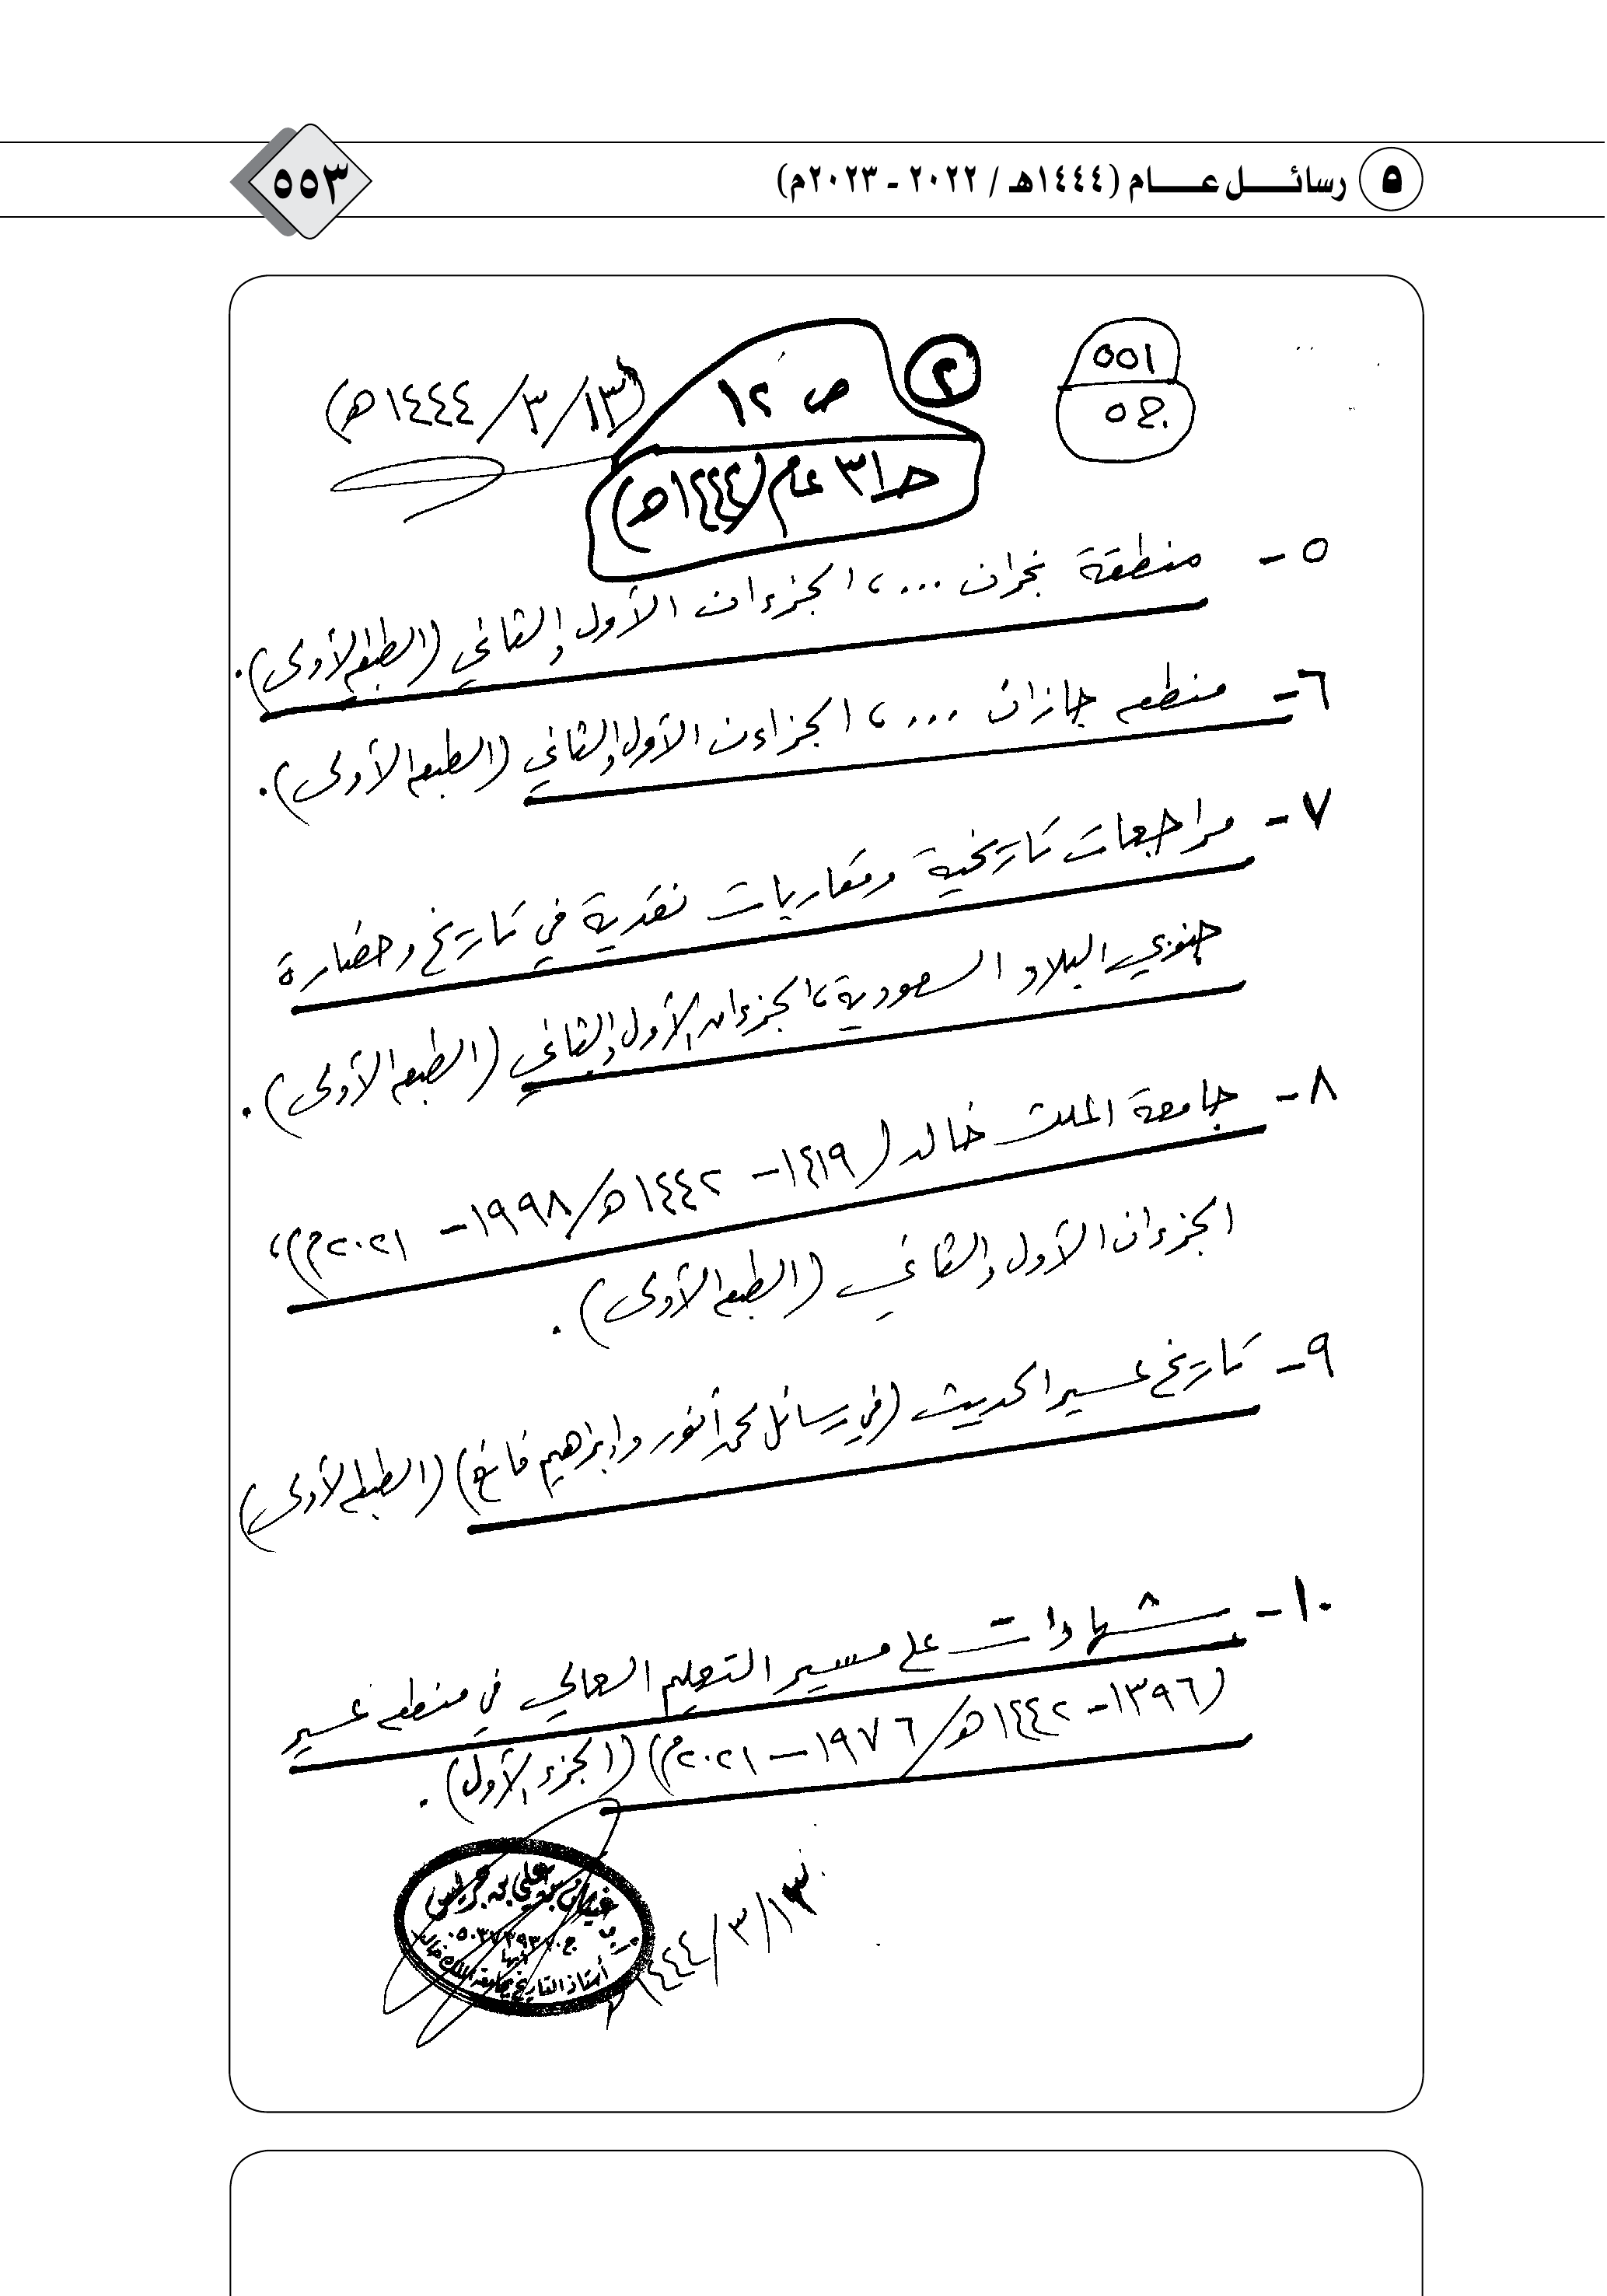 ٥ رسائل عام (١٤٤٤هـ / ٢٠٢٢ - ٢٠٢٣م) ٥٥٣
٥٥١
٢
ص ١٢
(١٣/٣/١٤٤٤هـ)
ح٣١ عام (١٤٤٤هـ)
٥- منطقة نجران ...، الجزءان الأول والثاني (الطبعة الأولى).
٦- منطقة جازان ...، الجزاءن الأول والثاني (الطبعة الأولى).
٧- مراجعات تاريخية ومقاربات نقدية في تاريخ وحضارة
جنوبي البلاد السعودية، الجزءان الأول والثاني (الطبعة الأولى).
٨- جامعة الملك خالد (١٤١٩- ١٤٤٢هـ/١٩٩٨- ٢٠٢١م)،
الجزءان الأول والثاني (الطبعة الأولى).
٩- تاريخ عسير الحديث (في رسائل محمد أنور وإبراهيم فائع) (الطبعة الأولى)
١٠- شهادات على مسير التعليم العالي في منطقة عسير
(١٣٩٦- ١٤٤٢هـ/١٩٧٦- ٢٠٢١م) (الجزء الأول).
١٣/٣/١٤٤٤
غيثان بن علي بن جريس
أبها
أستاذ التاريخ بجامعة الملك خالد